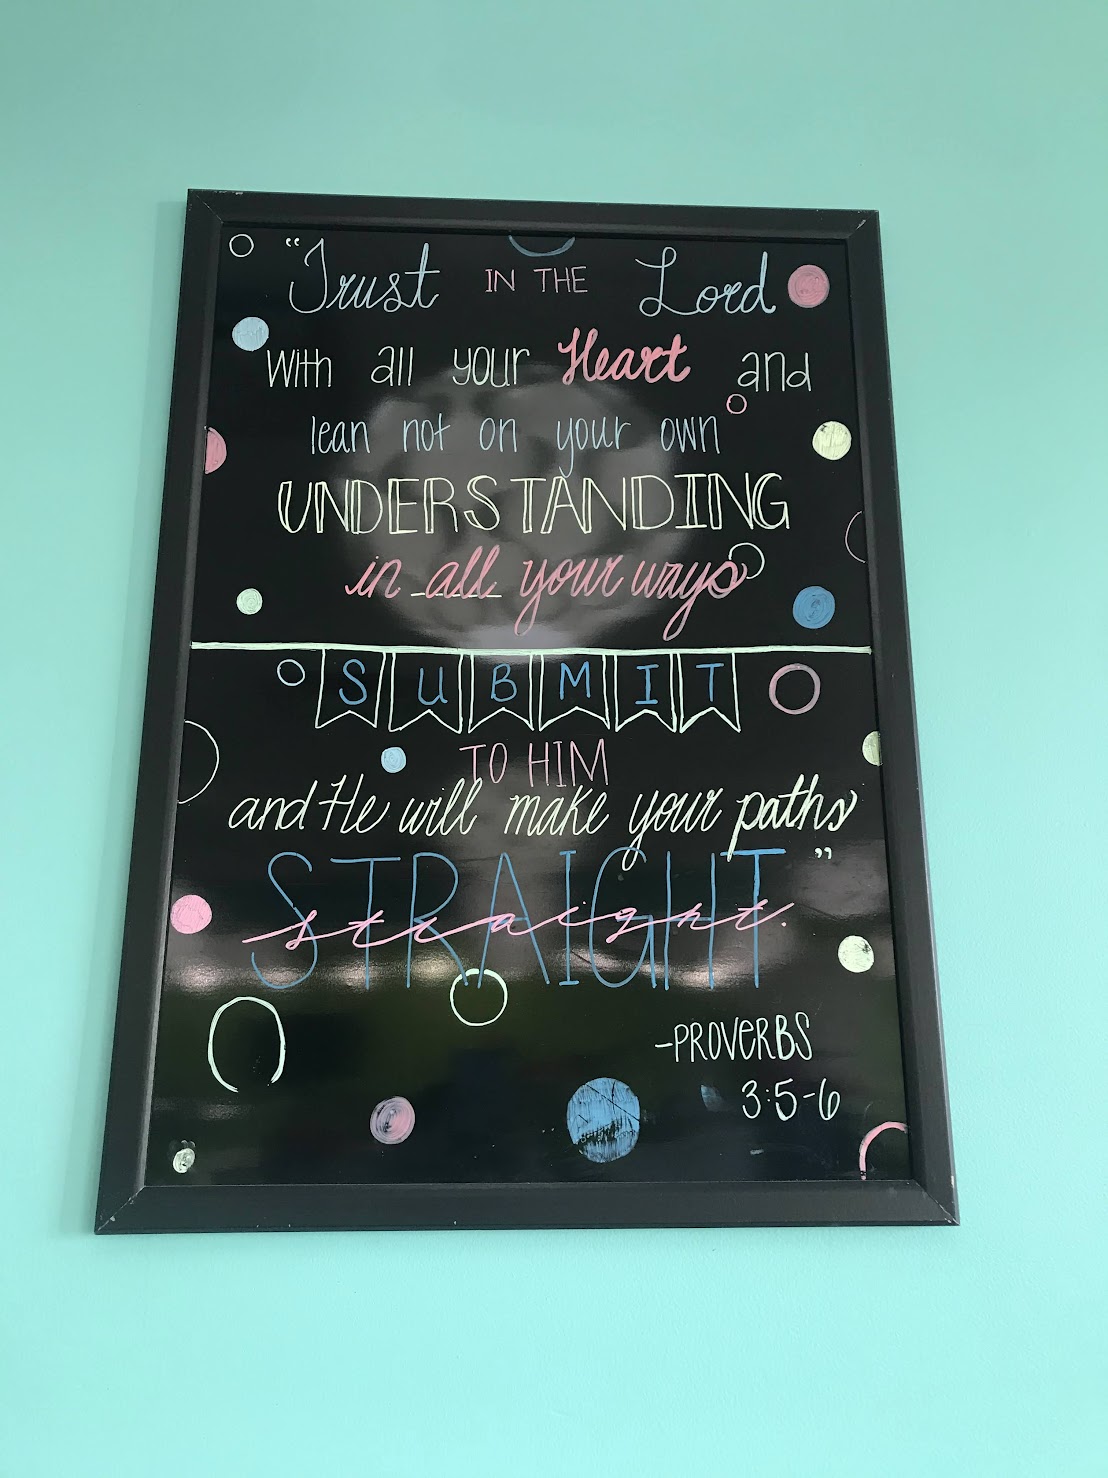 "Trust IN THE Lord
With all your Heart and
lean not on your own
UNDERSTANDING
in all your ways
SUBMIT
TO HIM
and He will make your paths
STRAIGHT"
straight.
-PROVERBS
3:5-6